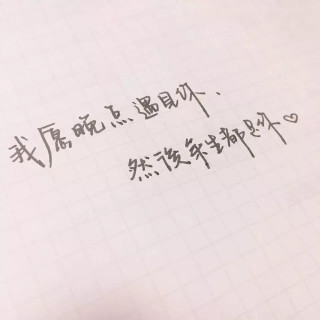 我愿晚点遇见你.
然後余生都是你♡